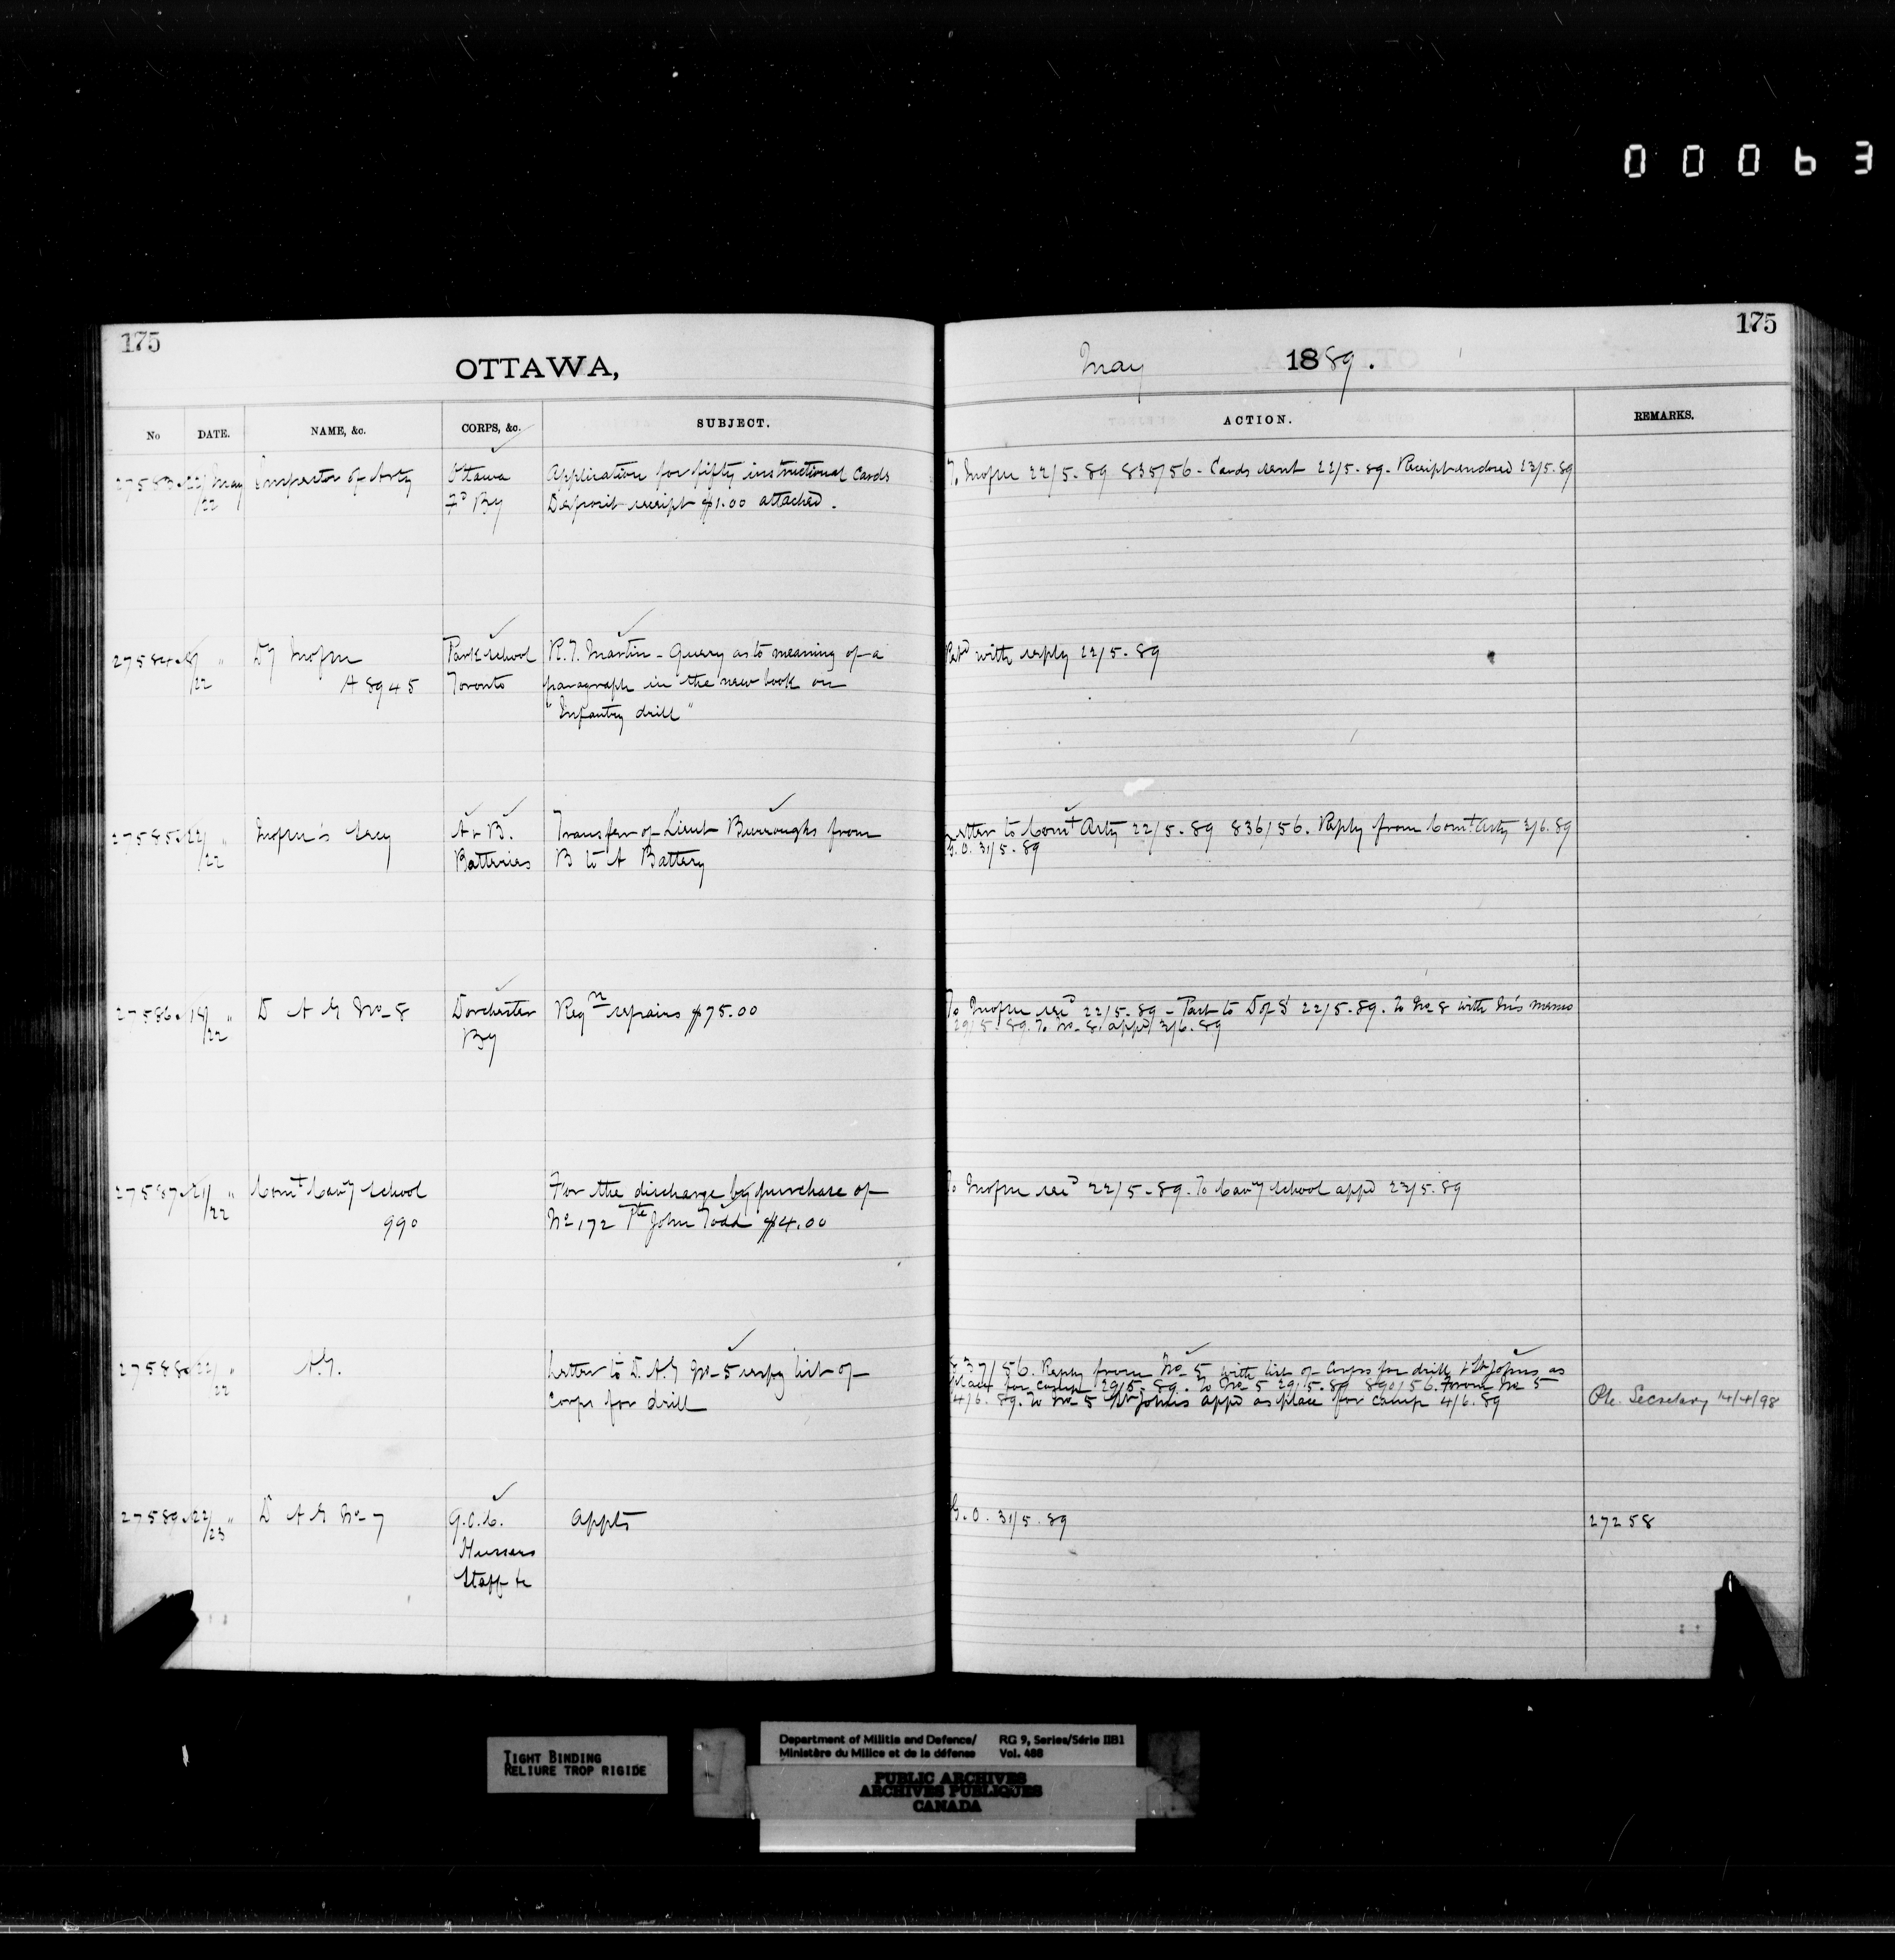 00063
175
OTTAWA,
No DATE. NAME, &c. CORPS, &c. SUBJECT.
27583 22/22 May Inspector of Arty Ottawa Application for fifty instructional Cards
Fd By Deposit receipt $1.00 attached.
27584 8/22 " Park School R. T. Martin - Query as to meaning of a
A 8945 Toronto paragraph in the new book on
"Infantry drill"
27585 22/22 " A & B. Transfer of Lieut Burroughs from
Batteries B to A Battery
27586 18/22 " D A G No 8 Dorchester Reqn repairs $75.00
By
27587 21/22 " Comt Cavy School For the discharge by purchase of
990 No 172 Pte John Todd $4.00
27588 22/22 " A.G. Letter to D.A.G No 5 respg list of
Corps for drill
27589 22/23 " D A G No 7 G.O.C. Appts
Hussars
Staff &c
175
May 1889.
ACTION. REMARKS.
22/5-89 835/56 - Cards sent 22/5-89 - Receipt endorsed 23/5.89
Retd with reply 22/5-89
Letter to Comt Arty 22/5-89 836/56. Reply from Comt Arty 3/6.89
G.O. 31/5-89
22/5-89 - Part to D of S 22/5-89. To No 8 with memo
29/5-89. To No 8 appd 3/6.89
22/5-89. To Cavy School appd 23/5.89
837/56. Reply from No 5 with list of Corps for drill & St Johns as
place for camp 29/5-89. To No 5 29/5-89 890/56. From No 5
4/6.89. To No 5 St Johns appd as place for camp 4/6.89
Secretary 14/4/98
G.O. 31/5.89 27258
TIGHT BINDING
RELIURE TROP RIGIDE
Department of Militia and Defence/ RG 9, Series/Série IIB1
Ministère du Milice et de la défense Vol. 488
PUBLIC ARCHIVES
ARCHIVES PUBLIQUES
CANADA